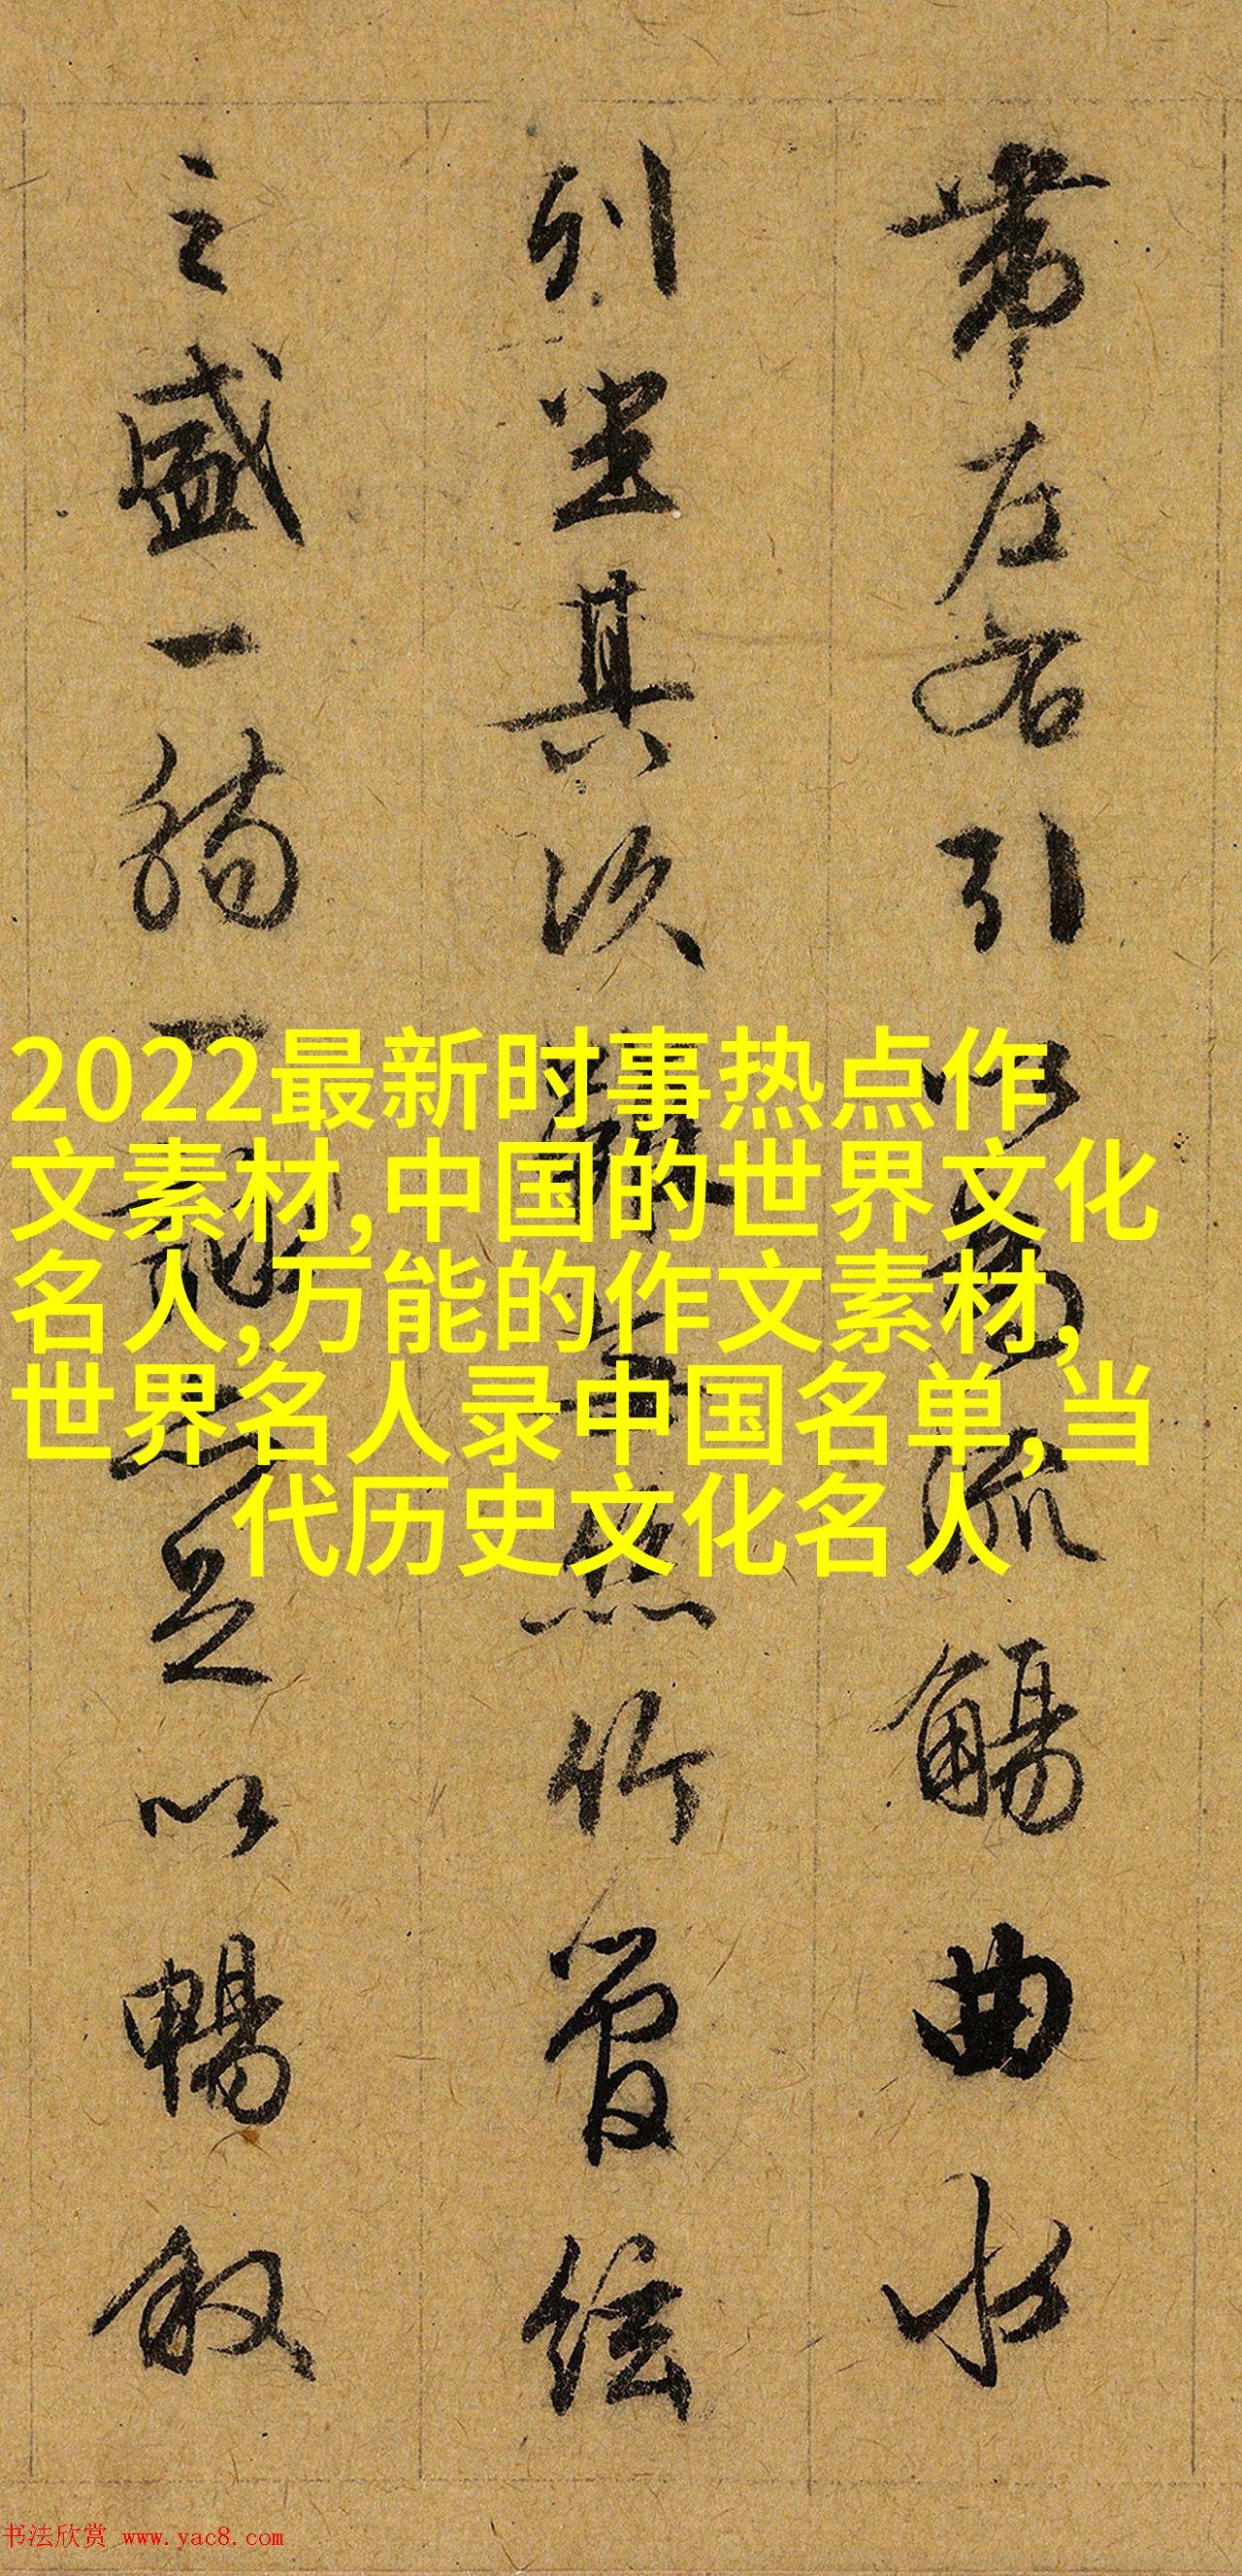 帶左右引以為流觴曲水
列坐其次雖無絲竹管絃
之盛一觴一詠亦足以暢敘
2022最新时事热点作
文素材,中国的世界文化
名人,万能的作文素材,
世界名人录中国名单,当
代历史文化名人
书法欣赏 www.yac8.com